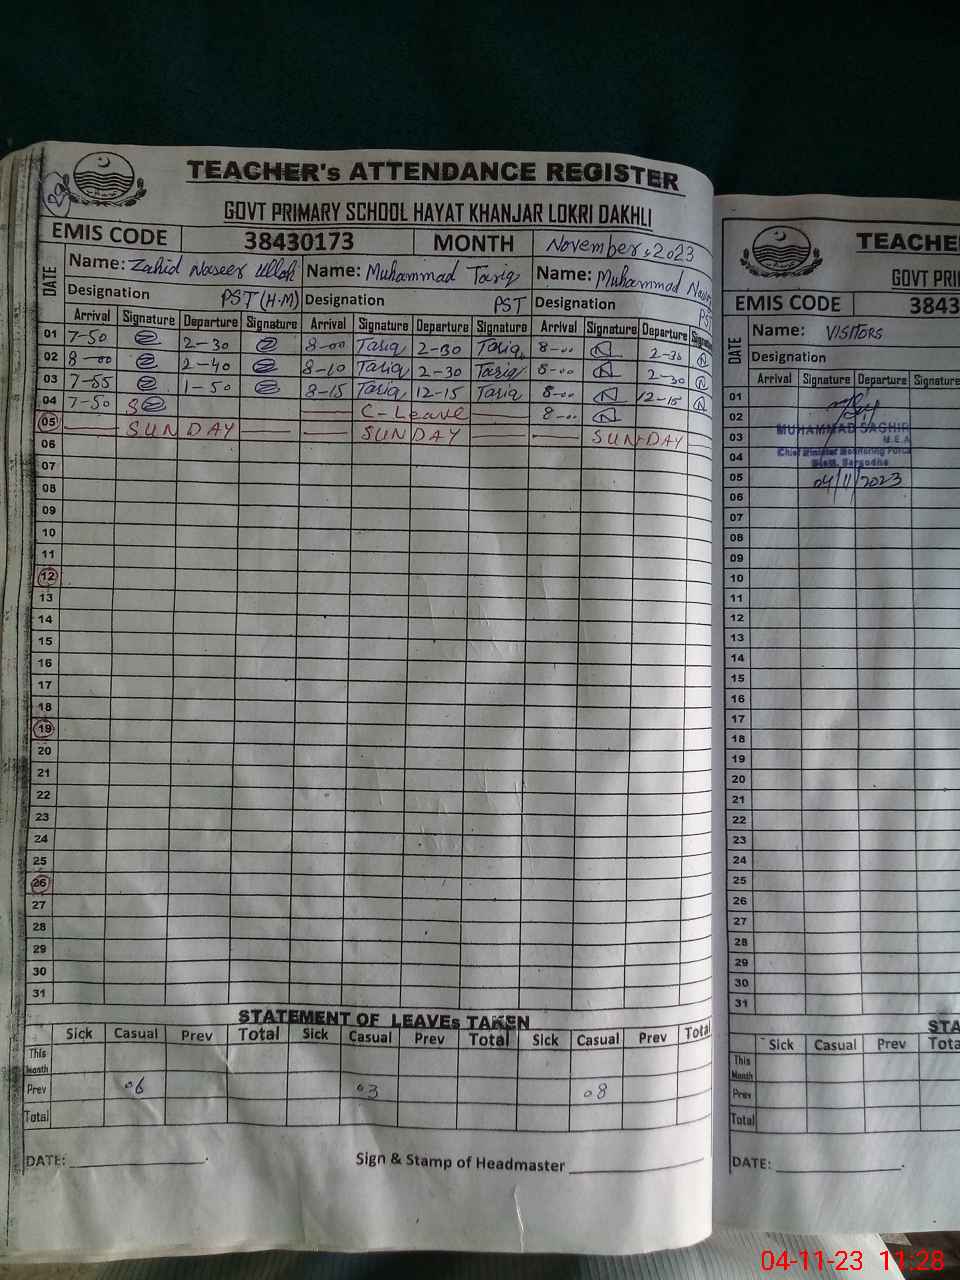 TEACHER's ATTENDANCE REGISTER
GOVT PRIMARY SCHOOL HAYAT KHANJAR LOKRI DAKHLI
EMIS CODE 38430173 MONTH November, 2023
DATE Name: Zahid Naseer Ullah Name: Muhammad Tariq Name: Muhammad
Designation PST (H-M) Designation PST Designation PST
Arrival Signature Departure Signature Arrival Signature Departure Signature Arrival Signature Departure Signature
01 7-50 2-30 8-00 Tariq 2-30 Tariq 8-00 2-30
02 8-00 2-40 8-10 Tariq 2-30 Tariq 8-00 2-30
03 7-55 1-50 8-15 Tariq 12-15 Tariq 8-00 12-15
04 7-50 C-Leave 8-00
05 SUNDAY SUNDAY SUNDAY
06
07
08
09
10
11
12
13
14
15
16
17
18
19
20
21
22
23
24
25
26
27
28
29
30
31
STATEMENT OF LEAVEs TAKEN
Sick Casual Prev Total Sick Casual Prev Total Sick Casual Prev Total
This Month
Prev 06 03 08
Total
DATE: Sign & Stamp of Headmaster
TEACHE
GOVT PRI
EMIS CODE 3843
DATE Name: VISITORS
Designation
Arrival Signature Departure Signature
01
02
03 MUHAMMAD SAGHIR
M.E.A
04 Chief Minister Monitoring Force
Distt. Sargodha
05 04/11/2023
06
07
08
09
10
11
12
13
14
15
16
17
18
19
20
21
22
23
24
25
26
27
28
29
30
31
STA
Sick Casual Prev Tota
This Month
Prev
Total
DATE:
04-11-23 11:28